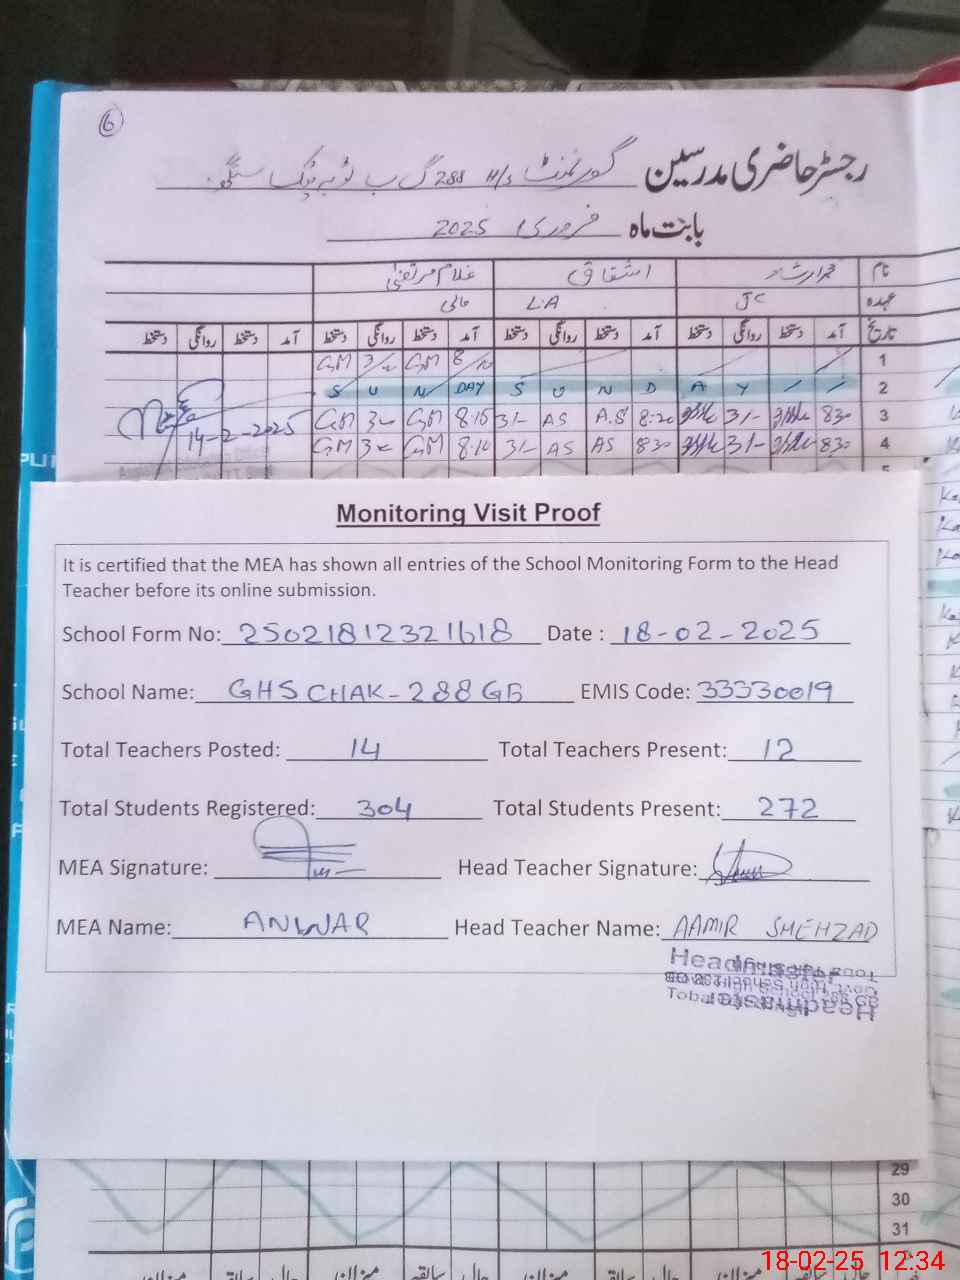 6
رجسٹر حاضری مدرسین گورنمنٹ H/S 288 گ ب ٹوبہ ٹیک سنگھ
بابت ماہ فروری 2025
نام محمد ارشاد اشفاق غلام مرتضیٰ
عہدہ JC L.A مالی
تاریخ آمد دستخط روانگی دستخط آمد دستخط روانگی دستخط آمد دستخط روانگی دستخط آمد دستخط روانگی دستخط
GM GM 8 1
S U N DAY S U N D A Y 2
GM GM 8:15 3/- AS A.S 8:20 3/- 830 3
GM GM 8:10 3/- AS AS 830 3/- 830 4
14-2-2025
5
Monitoring Visit Proof
It is certified that the MEA has shown all entries of the School Monitoring Form to the Head
Teacher before its online submission.
School Form No: 25021812321618 Date : 18-02-2025
School Name: GHS CHAK-288GB EMIS Code: 33330019
Total Teachers Posted: 14 Total Teachers Present: 12
Total Students Registered: 304 Total Students Present: 272
MEA Signature: Head Teacher Signature:
MEA Name: ANWAR Head Teacher Name: AAMIR SHEHZAD
Headmaster
29
30
31
18-02-25 12:34